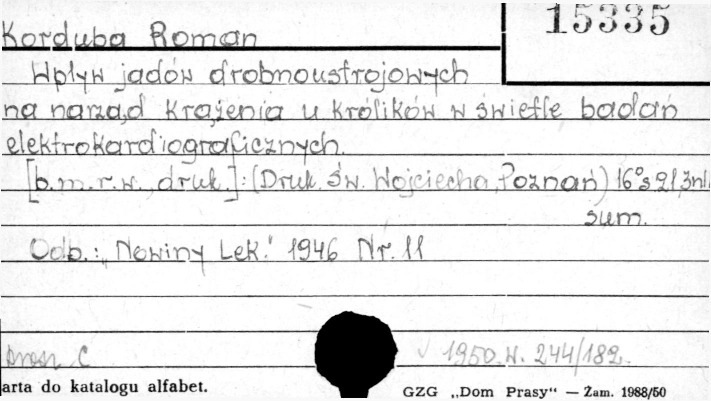 15335
Korduba Roman
Wpływ jadów drobnoustrojowych
na narząd krążenia u królików w świetle badań
elektrokardiograficznych.
[b.m.r.w., druk.]: (Druk. Św. Wojciecha, Poznań) 16° s 21, 3 nl.
sum.
Odb.: „Nowiny Lek." 1946 Nr. 11
C
1950.W. 244/182.
arta do katalogu alfabet.
GZG „Dom Prasy" — Zam. 1988/50